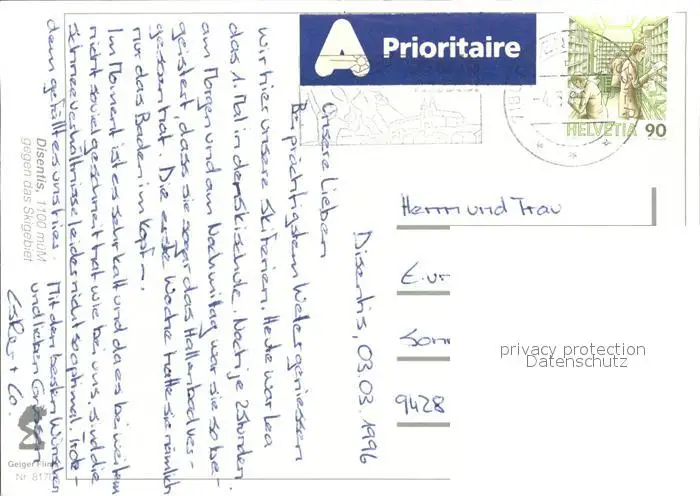 Prioritaire
HELVETIA 90
Disentis, 03.03.1996
Unsere Lieben
Bei prächtigstem Wetter geniessen
wir hier unsere Skiferien. Heute war Lea
das 1. Mal in der Skischule. Nach je 2 Stunden
am Morgen und am Nachmittag war sie so be-
geistert, dass sie sogar das Hallenbad ver-
gessen hat. Die erste Woche hatte sie nämlich
nur das Baden im Kopf –.
Im Moment ist es sehr kalt und da es bei weitem
nicht soviel geschneit hat wie bei uns, sind die
Schneeverhältnisse leider nicht so optimal. Trotz-
dem gefällt es uns
Mit den besten Wünschen
und lieben Grüssen
+ Co.
Herrn und Frau
Sonn
9428
privacy protection
Datenschutz
Disentis, 1100 müM
gegen das Skigebiet
Geiger Flims